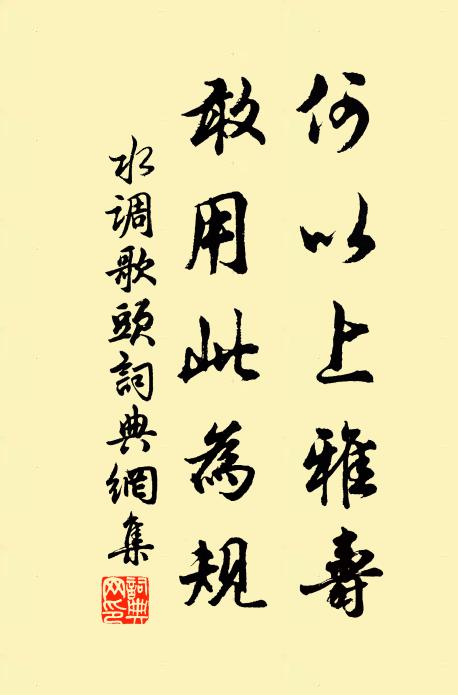 何以上雅壽
敢用此為規
水调歌頭詞典網集
詞典网印